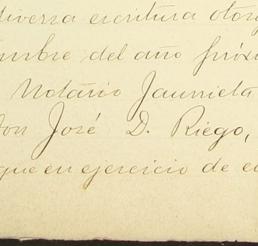 diversa escritura otorg
mbre del año próxi
Notario Jaumeta
Don José D. Riego,
que en ejercicio de e